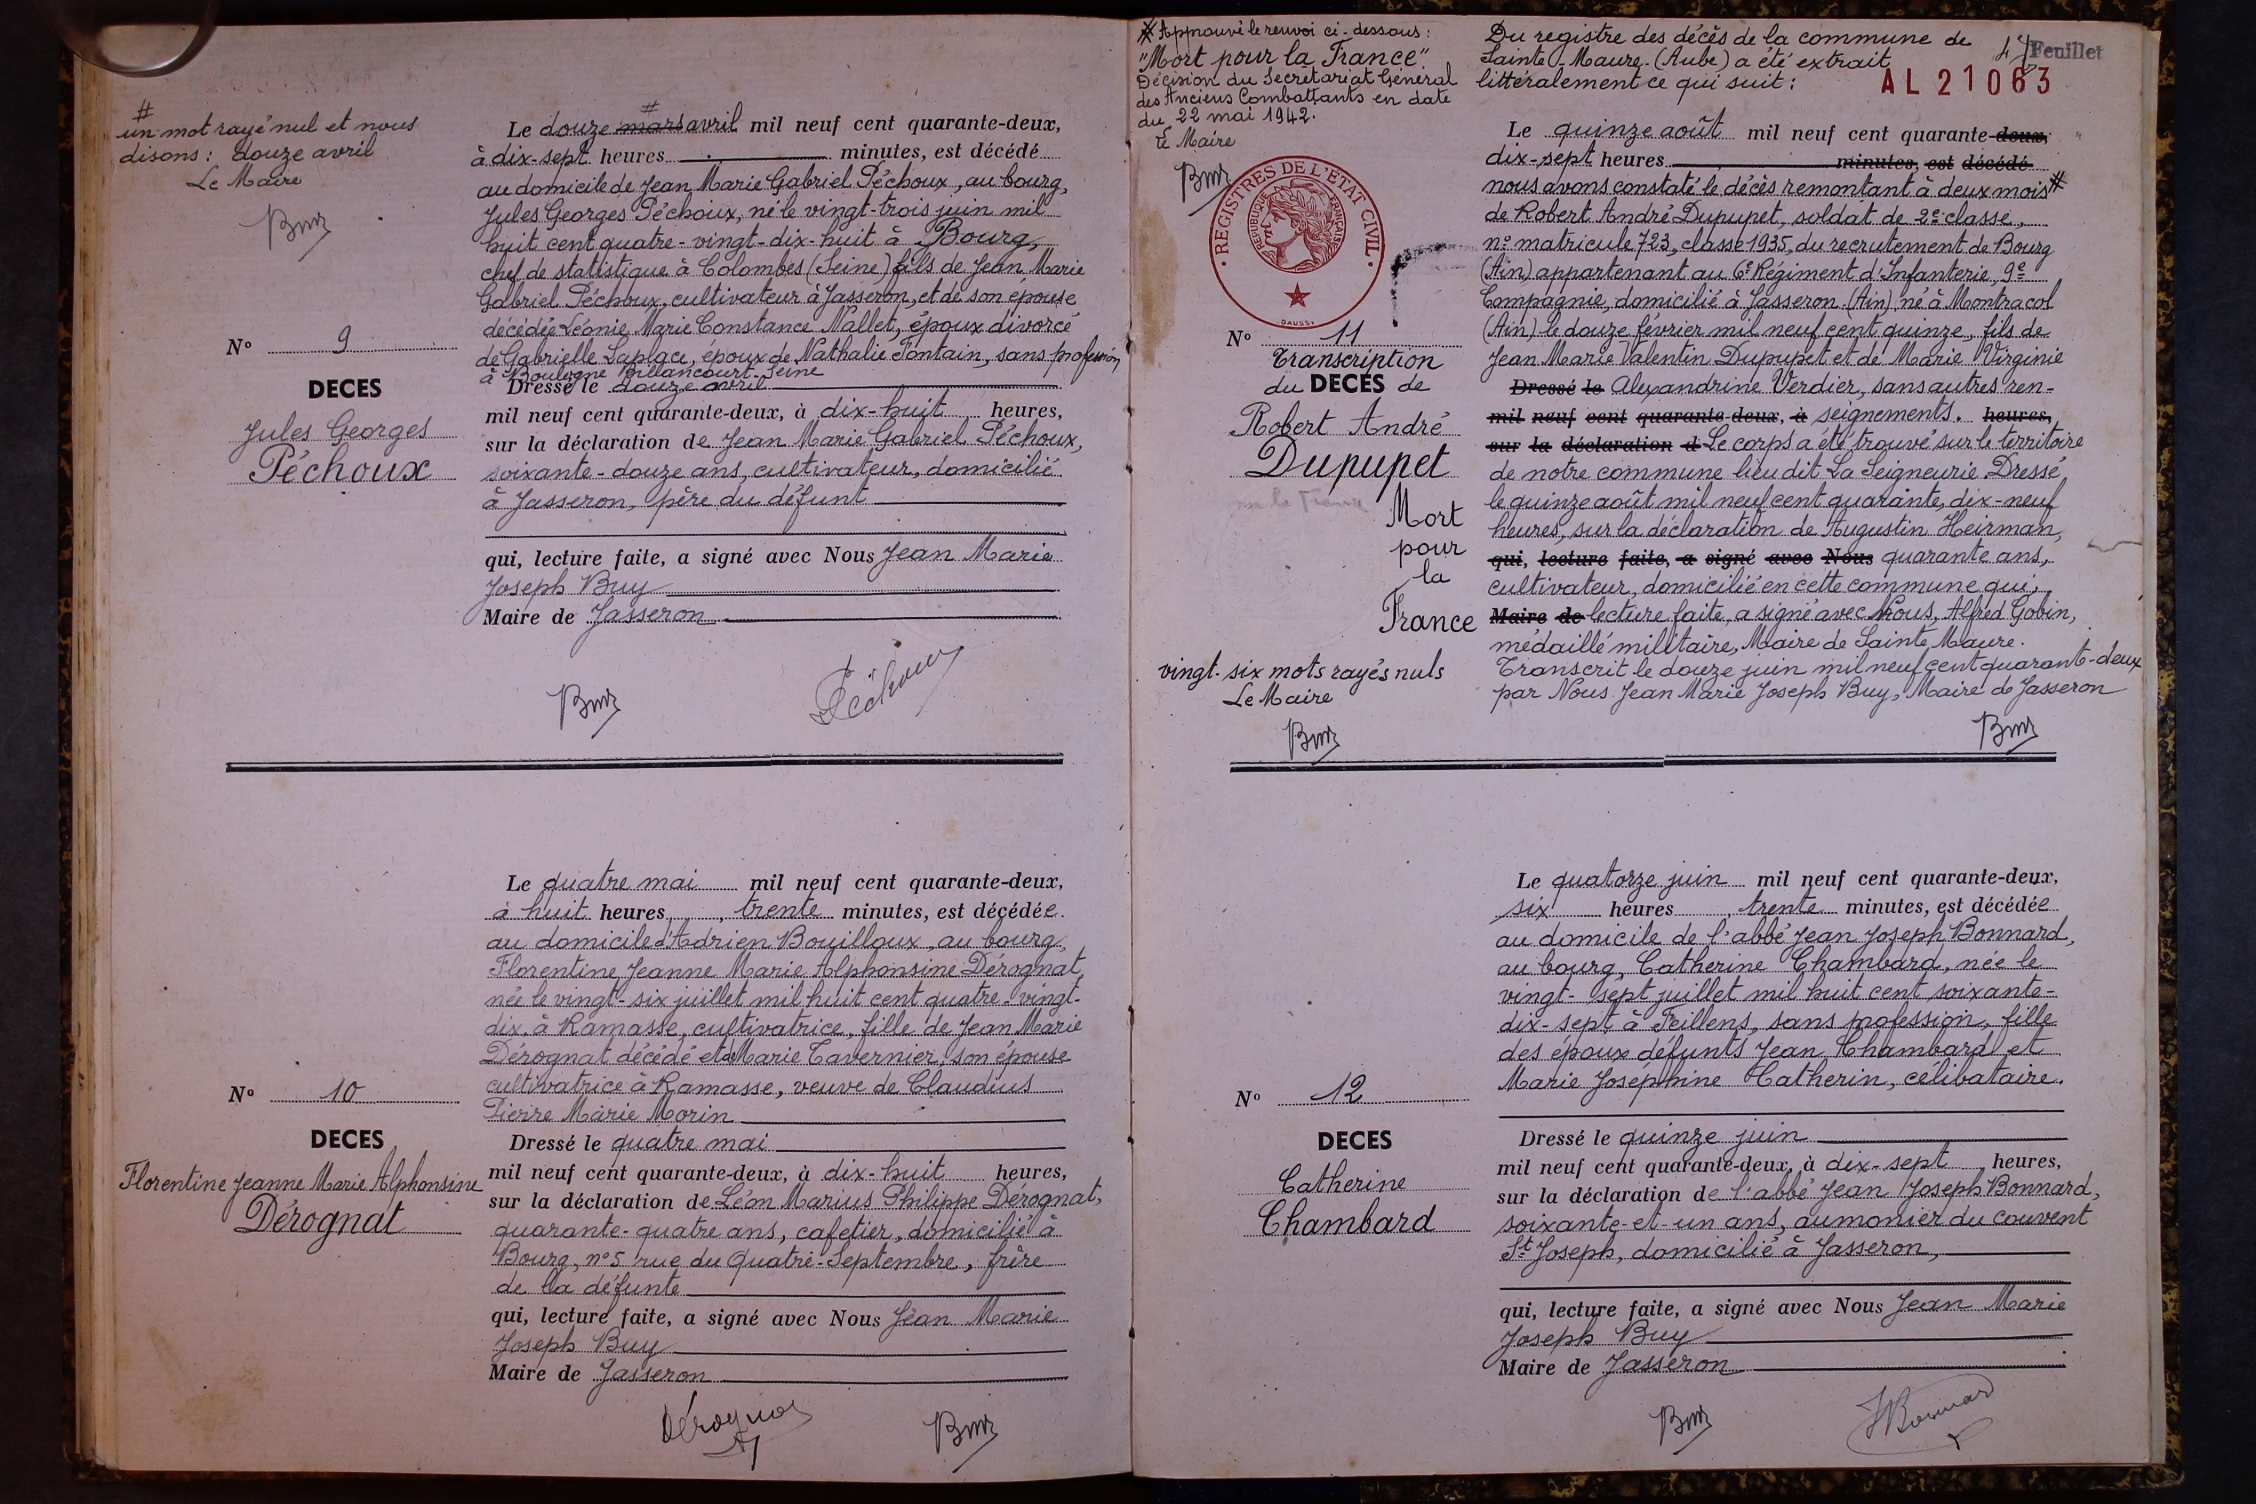 #
un mot rayé nul et nous
disons : douze avril
Le Maire
Buy
N° 9
DECES
Jules Georges
Péchoux
Le douze mars # avril mil neuf cent quarante-deux,
à dix-sept heures minutes, est décédé
au domicile de Jean Marie Gabriel Péchoux, au bourg,
Jules Georges Péchoux, né le vingt-trois juin mil
huit cent quatre-vingt-dix-huit à Bourg,
chef de statistique à Colombes (Seine) fils de Jean Marie
Gabriel Péchoux, cultivateur à Jasseron, et de son épouse
décédée Léonie Marie Constance Nallet, époux divorcé
de Gabrielle Laplace, époux de Nathalie Fontain, sans profession
à Boulogne Billancourt-Seine
Dressé le douze avril
mil neuf cent quarante-deux, à dix-huit heures,
sur la déclaration de Jean Marie Gabriel Péchoux,
soixante-douze ans, cultivateur, domicilié
à Jasseron, père du défunt
qui, lecture faite, a signé avec Nous Jean Marie
Joseph Buy
Maire de Jasseron
Buy Péchoux
N° 10
DECES
Florentine Jeanne Marie Alphonsine
Dérognat
Le quatre mai mil neuf cent quarante-deux,
à huit heures, trente minutes, est décédée
au domicile d'Adrien Bouilloux, au bourg,
Florentine Jeanne Marie Alphonsine Dérognat,
née le vingt-six juillet mil huit cent quatre-vingt-
dix à Ramasse, cultivatrice, fille de Jean Marie
Dérognat décédé et de Marie Tavernier, son épouse
cultivatrice à Ramasse, veuve de Claudius
Pierre Marie Morin
Dressé le quatre mai
mil neuf cent quarante-deux, à dix-huit heures,
sur la déclaration de Léon Marius Philippe Dérognat,
quarante-quatre ans, cafetier, domicilié à
Bourg, n° 5 rue du Quatre-Septembre, frère
de la défunte
qui, lecture faite, a signé avec Nous Jean Marie
Joseph Buy
Maire de Jasseron
Dérognat Buy
# Approuvé le renvoi ci-dessous :
"Mort pour la France".
Décision du Secrétariat Général
des Anciens Combattants en date
du 22 mai 1942.
Le Maire
Buy
REGISTRES DE L'ETAT CIVIL
REPUBLIQUE FRANÇAISE
DAUSSY
N° 11
Transcription
du DECES de
Robert André
Dupupet
Mort
pour
la
France
vingt-six mots rayés nuls
Le Maire
Buy
Feuillet
AL 21063
Du registre des décès de la commune de
Sainte-Maure (Aube) a été extrait
littéralement ce qui suit :
Le quinze août mil neuf cent quarante-deux,
dix-sept heures minutes, est décédé
nous avons constaté le décès remontant à deux mois #
de Robert André Dupupet, soldat de 2e classe,
n° matricule 723, classe 1935, du recrutement de Bourg
(Ain) appartenant au 6e Régiment d'Infanterie, 9e
Compagnie, domicilié à Jasseron (Ain), né à Montracol
(Ain) le douze février mil neuf cent quinze, fils de
Jean Marie Valentin Dupupet et de Marie Virginie
Dressé le Alexandrine Verdier, sans autres ren-
mil neuf cent quarante-deux, à seignements. heures,
sur la déclaration d Le corps a été trouvé sur le territoire
de notre commune lieu dit La Seigneurie. Dressé
le quinze août mil neuf cent quarante, dix-neuf
heures, sur la déclaration de Augustin Heirman,
qui, lecture faite, a signé avec Nous quarante ans,
cultivateur, domicilié en cette commune qui,
Maire de lecture faite, a signé avec Nous, Alfred Gobin,
médaillé militaire, Maire de Sainte Maure.
Transcrit le douze juin mil neuf cent quarante-deux
par Nous Jean Marie Joseph Buy, Maire de Jasseron
Buy
N° 12
DECES
Catherine
Chambard
Le quatorze juin mil neuf cent quarante-deux,
six heures, trente minutes, est décédée
au domicile de l'abbé Jean Joseph Bonnard,
au bourg, Catherine Chambard, née le
vingt-sept juillet mil huit cent soixante-
dix-sept à Feillens, sans profession, fille
des époux défunts Jean Chambard et
Marie Joséphine Catherin, célibataire.
Dressé le quinze juin
mil neuf cent quarante-deux, à dix-sept heures,
sur la déclaration de l'abbé Jean Joseph Bonnard,
soixante-et-un ans, aumônier du couvent
St Joseph, domicilié à Jasseron,
qui, lecture faite, a signé avec Nous Jean Marie
Joseph Buy
Maire de Jasseron
Buy JBonnard